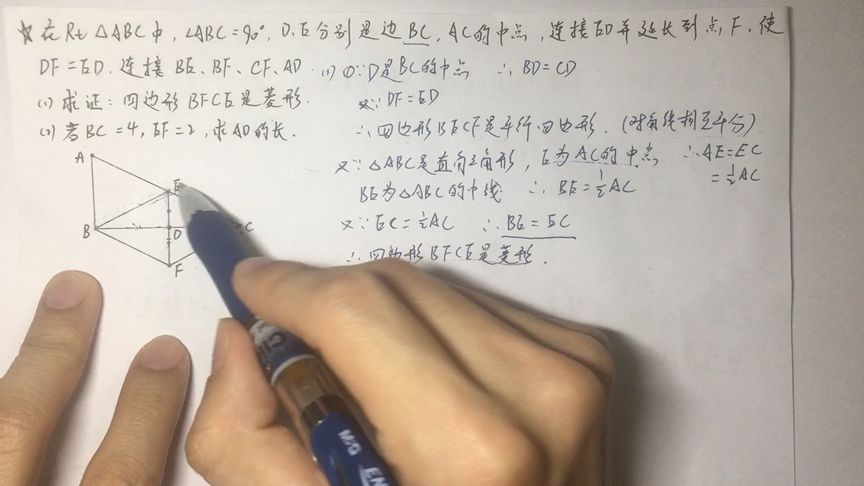 ☆在Rt△ABC中,∠ABC=90°,D、E分别是边BC,AC的中点,连接ED并延长到点F,使
DF=ED.连接BE、BF、CF、AD
(1)求证:四边形BFCE是菱形.
(2)若BC=4,EF=2,求AD的长.
(1)①∵D是BC的中点 ∴BD=CD
又∵DF=ED
∴四边形BECF是平行四边形.(对角线相互平分)
又∵△ABC是直角三角形,E为AC的中点 ∴AE=EC
=½AC
BE为△ABC的中线 ∴BE=½AC
又∵EC=½AC ∴BE=EC
∴四边形BFCE是菱形.
A
E
B
D
C
F
M&G